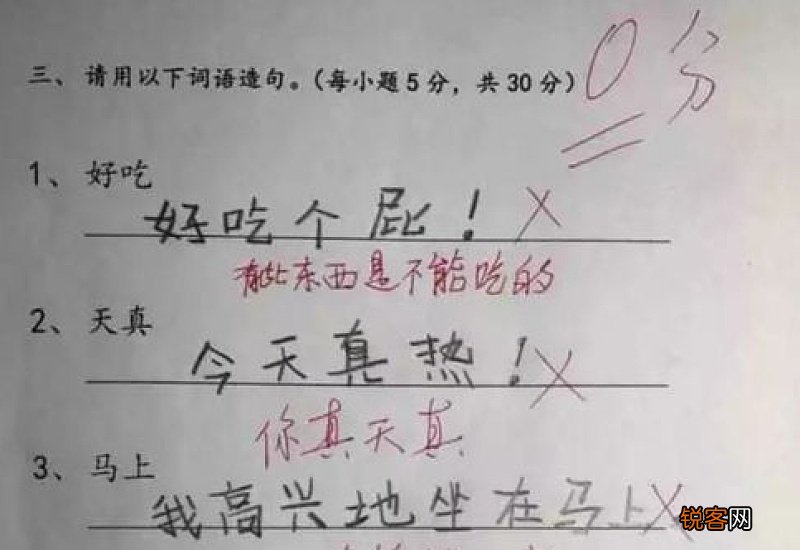 三、请用以下词语造句。(每小题5分，共30分)
0分
1、好吃
好吃个屁！
有些东西是不能吃的
2、天真
今天真热！
你真天真
3、马上
我高兴地坐在马上
锐客网